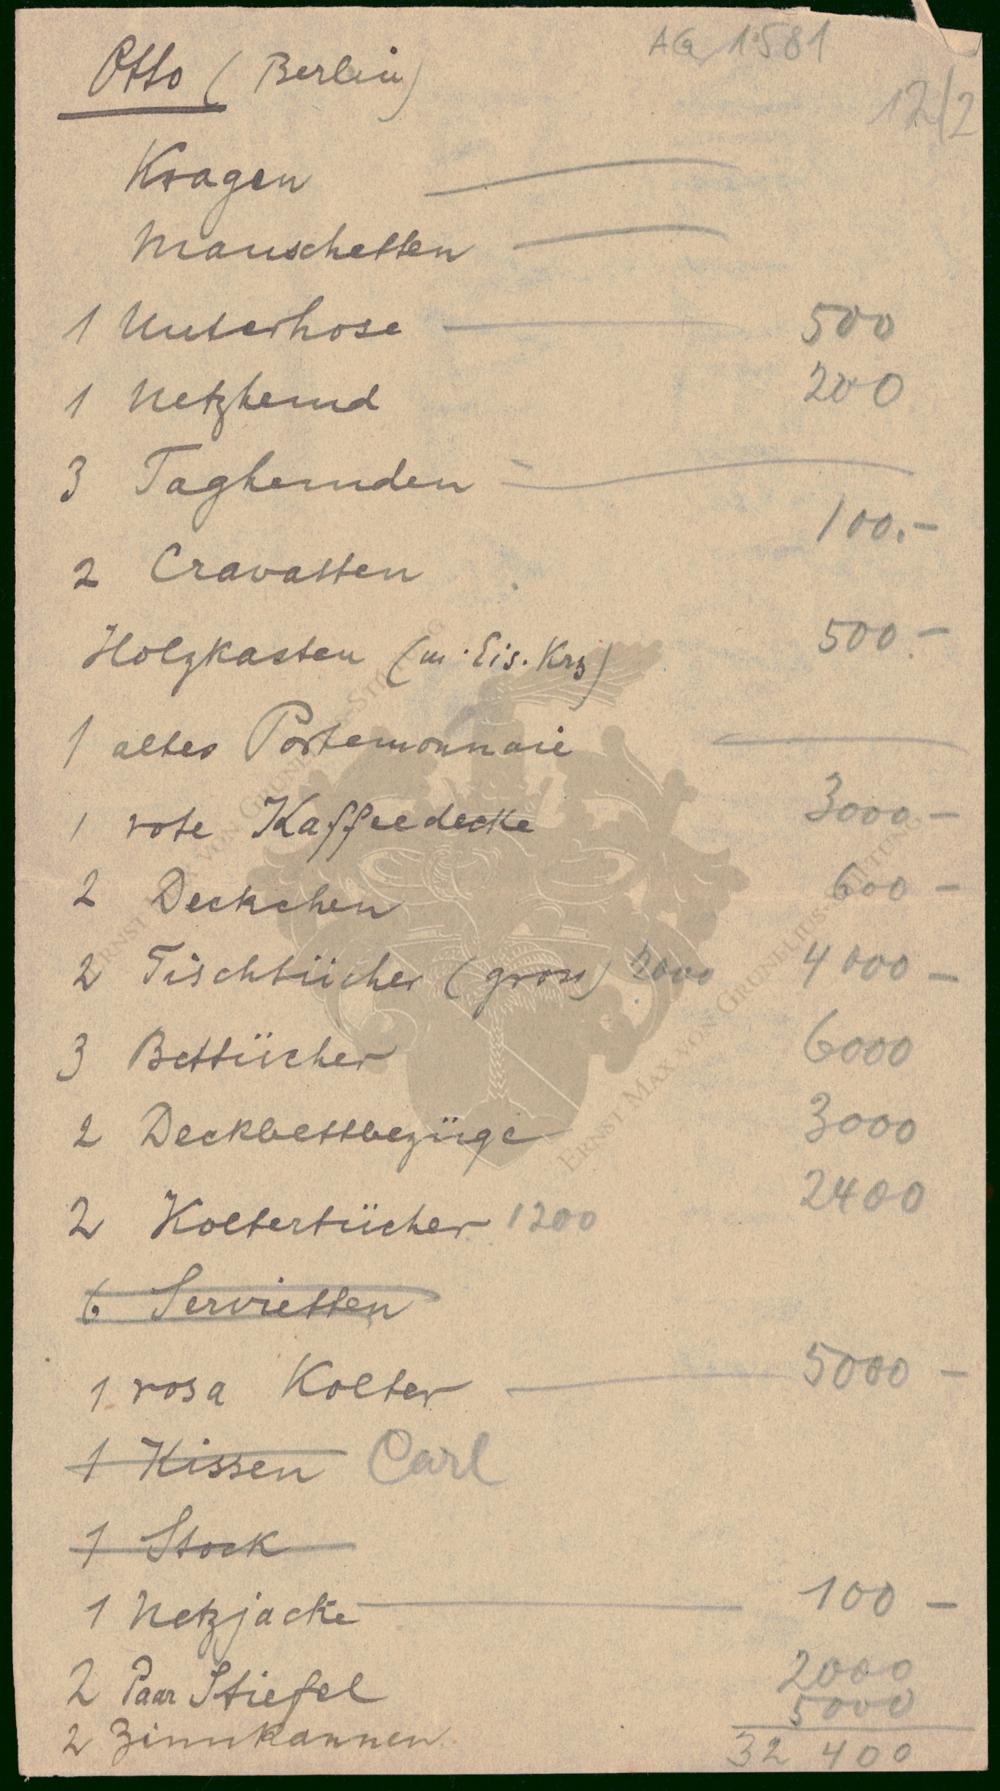 AG 1581
Otto (Berlin)
12/2
Kragen —
Manschetten —
1 Unterhose — 500
1 Netzhemd 200
3 Taghemden —
100.-
2 Cravatten
Holzkasten (m. Eis. Krz) 500.-
1 altes Portemonnaie —
1 rote Kaffeedecke 3000 -
2 Deckchen 600 -
2 Tischtücher (gross) 2000 4000 -
3 Bettücher 6000
2 Deckbettbezüge 3000
2 Koltertücher 1200 2400
6 Servietten
1 rosa Kolter — 5000 -
1 Kissen Carl
1 Stock
1 Netzjacke — 100 -
2 Paar Stiefel 2000
2 Zinnkannen 5000
32 400
ERNST MAX VON GRUNELIUS-STIFTUNG
ERNST MAX VON GRUNELIUS-STIFTUNG